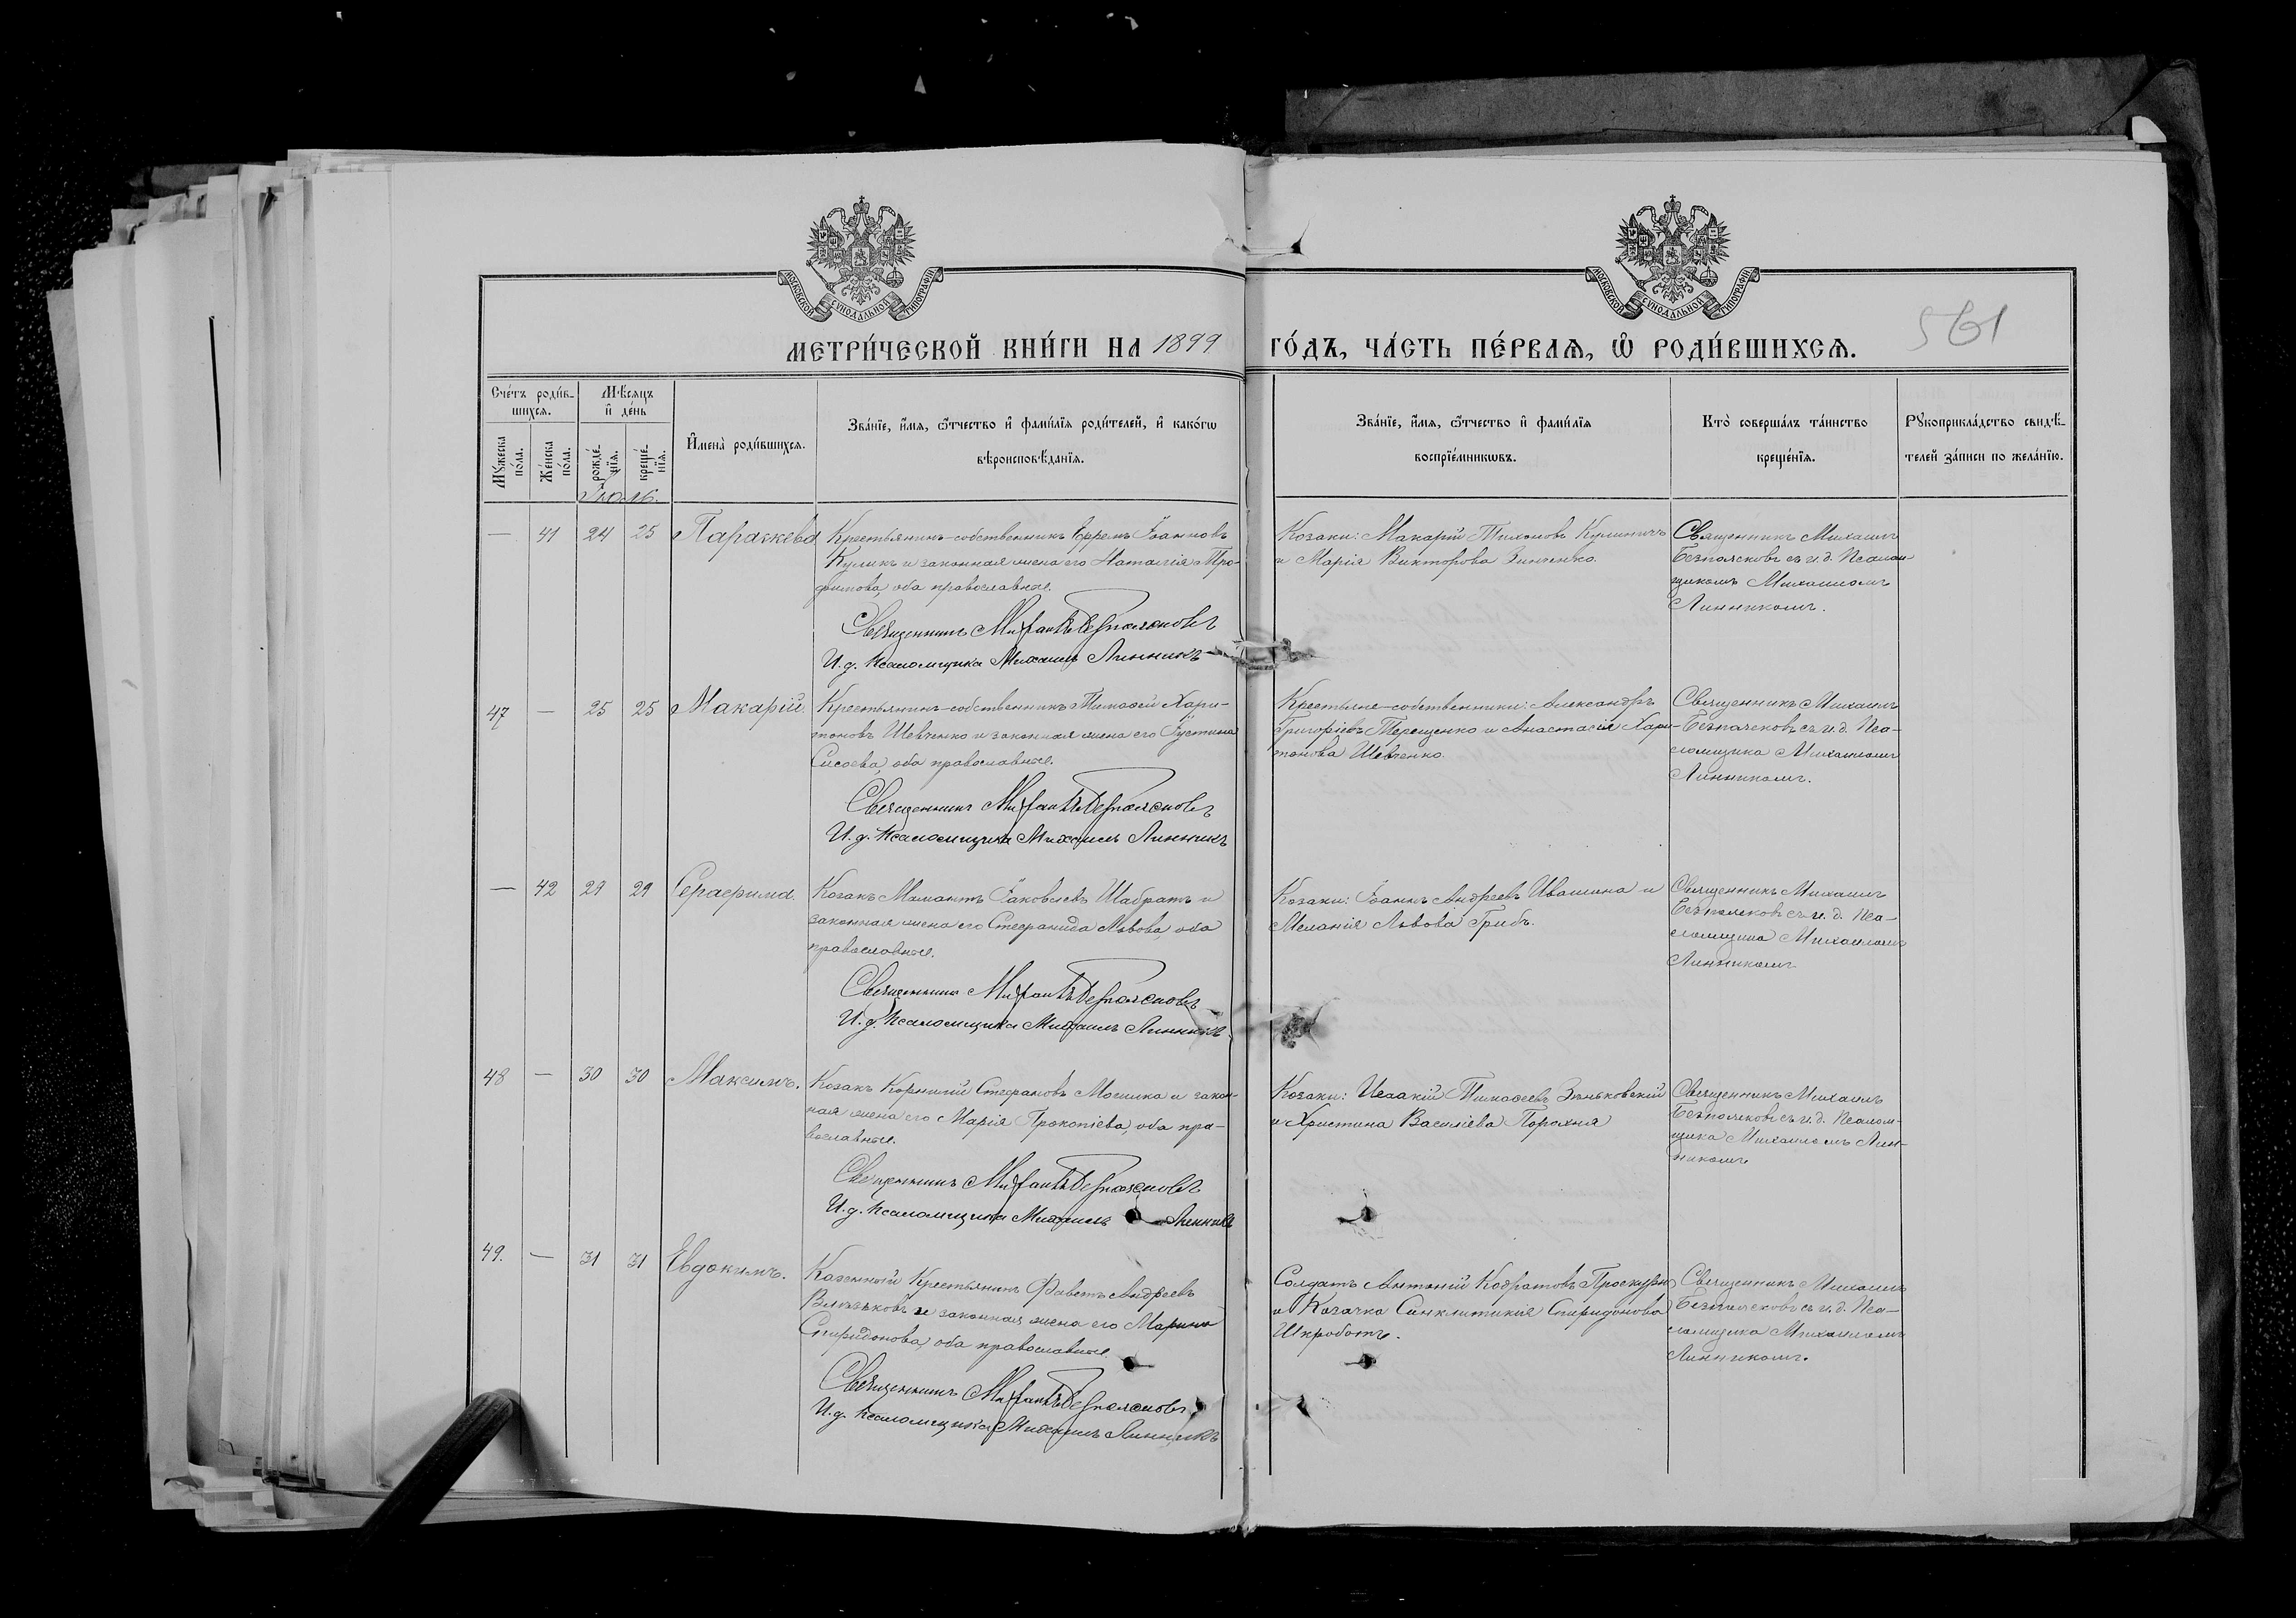 МОСКОВСКОЙ СѴНОДАЛЬНОЙ ТИПОГРАФІИ
МОСКОВСКОЙ СѴНОДАЛЬНОЙ ТИПОГРАФІИ
561
МЕТРИ́ЧЕСКОЙ КНИ́ГИ НА 1899 ГО́ДЪ, ЧА́СТЬ ПЕ́РВАЯ, Ѿ РОДИ́ВШИХСЯ.
Сче́тъ роди́в-
шихся.
Мѣ́сяцъ
и҆ де́нь
Мꙋ́жеска
по́ла.
Же́нска
по́ла.
рожде́-
нїя.
креще́-
нїя.
И҆мена̀ роди́вшихся.
Зва́нїе, и҆́мя, ѻ҆́тчество и҆ фами́лїя роди́телей, и҆ како́гѡ
вѣроисповѣ́данїя.
Зва́нїе, и҆́мя, ѻ҆́тчество и҆ фами́лїя
воспрїе́мникѡвъ.
Кто̀ соверша́лъ та́инство
креще́нїя.
Рꙋкоприкла́дство свидѣ́-
телей за́писи по жела́нїю.
Іюль.
— 41 24 25 Параскева
Крестьянинъ-собственникъ Ефремъ Іоанновъ
Куликъ и законная жена его Наталія Тро-
фимова, оба православные.
Священникъ Михаилъ Безпоясковъ
И. д. Псаломщика Михаилъ Линникъ
Козаки: Макарій Тихоновъ Кулиничъ
и Марія Викторова Зинченко.
Священникъ Михаилъ
Безпоясковъ съ и. д. Псалом-
щикомъ Михаиломъ
Линникомъ.
47 — 25 25 Макарій.
Крестьянинъ-собственникъ Тимофей Хари-
тоновъ Шевченко и законная жена его Іустина
Сисоева, оба православные.
Священникъ Михаилъ Безпоясковъ
И. д. Псаломщика Михаилъ Линникъ
Крестьяне-собственники: Александръ
Григоріевъ Терещенко и Анастасія Хари-
тонова Шевченко.
Священникъ Михаилъ
Безпоясковъ съ и. д. Пса-
ломщика Михаиломъ
Линникомъ.
— 42 29 29 Серафима.
Козакъ Мамантъ Іаковлевъ Шабратъ и
законная жена его Стефанида Львова, оба
православные.
Священникъ Михаилъ Безпоясковъ
И. д. Псаломщика Михаилъ Линникъ
Козаки: Іоаннъ Андреевъ Ивашина и
Меланія Львова Грибъ.
Священникъ Михаилъ
Безпоясковъ съ и. д. Пса-
ломщика Михаиломъ
Линникомъ
48 — 30 30 Максимъ.
Козакъ Корнилій Стефановъ Могилка и закон-
ная жена его Марія Прокопіева, оба пра-
вославные.
Священникъ Михаилъ Безпоясковъ
И. д. Псаломщика Михаилъ Линникъ
Козаки: Исаакій Тимофеевъ Зѣньковскій
и Христина Василіева Порохня
Священникъ Михаилъ
Безпоясковъ съ и. д. Псалом-
щика Михаиломъ Лин-
никомъ
49. — 31 31 Евдокимъ.
Казенный Крестьянинъ Андреевъ
и законная жена его Марина
Спиридонова, оба православные.
Священникъ Михаилъ Безпоясковъ
И. д. Псаломщика Михаилъ Линникъ
Солдатъ Антоній Кодратовъ Проскурня
и Козачка Синклитикія Спиридонова
Шкроботъ.
Священникъ Михаилъ
Безпоясковъ съ и. д. Пса-
ломщика Михаиломъ
Линникомъ.